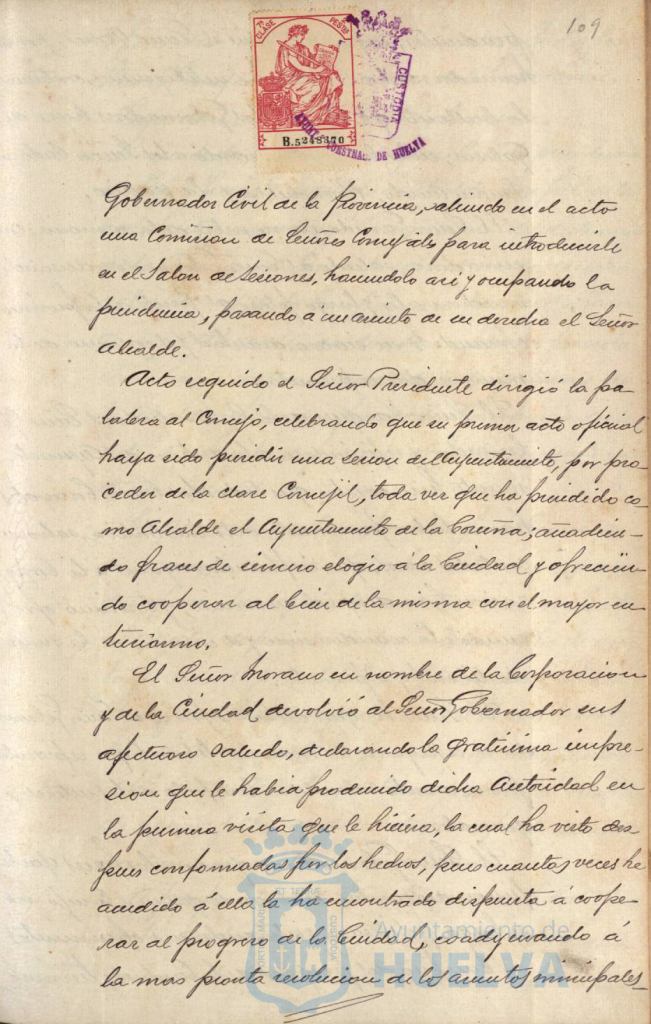 109
7ª CLASE
PESETAS
B.5248370
CUSTODIA
AYUNT
CONSTNAL. DE HUELVA
Gobernador Civil de la Provincia, saliendo en el acto
una Comision de Señores Concejales para introducirle
en el Salon de Sesiones, haciendolo asi y ocupando la
presidencia, pasando á un asiento de su derecha el Señor
Alcalde.
Acto seguido el Señor Presidente dirigió la pa-
labra al Concejo, celebrando que su primer acto oficial
haya sido presidir una sesion del Ayuntamiento, por pro-
ceder de la clase Concejil, toda vez que ha presidido co-
mo Alcalde el Ayuntamiento de la Coruña; añadien-
do frases de sincero elogio á la Ciudad y ofrecién-
do cooperar al bien de la misma con el mayor en-
tusiasmo.
El Señor Morano en nombre de la Corporacion
y de la Ciudad devolvió al Señor Gobernador sus
afectuoso saludo, declarando la gratisima impre-
sion que le habia producido dicha Autoridad en
la primera visita que le hiciera, la cual ha visto des-
pues confirmadas por los hechos, pues cuantas veces he
acudido á ella la ha encontrado dispuesta á coope-
rar al progreso de la Ciudad, coadyuvando á
la mas pronta resolucion de los asuntos municipales-
Ayuntamiento de
HUELVA